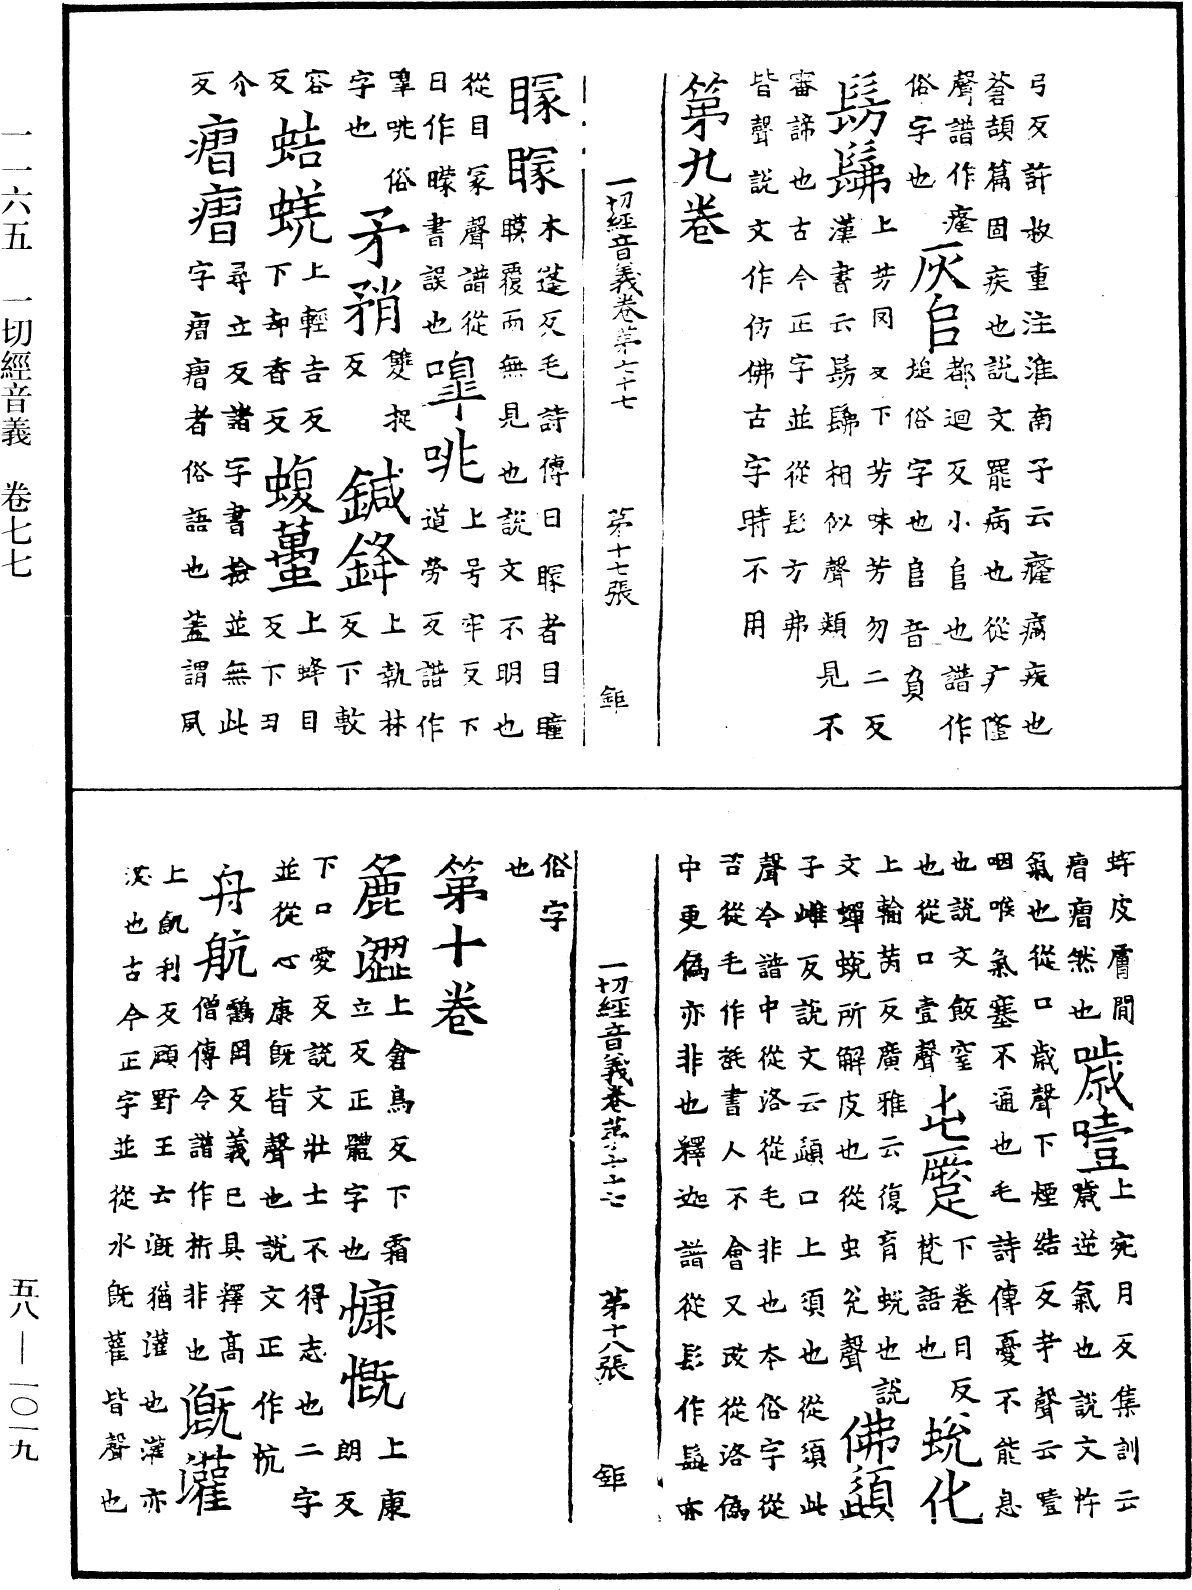 弓反許叔重注淮南子云癃痛疾也
蒼頡篇固疾也說文罷病也從疒隆
聲譜作癃 灰㠯 都迴反小𠂤也譜作
俗字也 塠俗字也𠂤音負
髣髴 上芳罔反下芳味芳勿二反
漢書云髣髴相似聲類見不
審諦也古今正字並從髟方弗
皆聲說文作仿佛古字時不用
第九卷
一切經音義卷第七十七 第十七張 鉅
矇矇 木蓬反毛詩傳曰矇者目瞳
矇覆而無見也說文不明也
從目冡聲譜從
日作曚書誤也 嘷咷 上号牢反下
道勞反譜作
嘷咣俗
字也 矛矟 雙捉
反 鍼鋒 上執林
反下敎
容
反 蛣蜣 上輕吉反
下却香反 蝮蠆 上蜂目
反下丑
介
反 㿧㿧 尋立反諸字書撿並無此
字㿧㿧者俗語也蓋謂夙
蚌皮膚間
㿧㿧然也 噦噎 上宛月反集訓云
噦逆氣也說文忤
氣也從口歲聲下煙結反
咽喉氣塞不通也毛詩傳憂不能息
也說文飯窒
也從口壹聲 𡉀蹷 下卷日反
梵語也 蛻化
上輸芮反廣雅云復育蛻也說
文蟬蛻所解皮也從虫兊聲 佛䫇
子雌反說文云䫇口上須也從須此
聲今譜中從洛從毛非也本俗字從
苦從毛作𣮏書人不會又改從洛偽
中更偽亦非也釋迦譜從髟作髭亦
俗字
也
一切經音義卷第七十七 第十八張 鉅
第十卷
麁澀 上倉烏反下霜
立反正體字也 慷慨 上康
朗反
下口愛反說文壯士不得志也二字
並從心康旣皆聲也說文正作忼
舟航 鶴岡反義已具釋高
僧傳今譜作斻非也 漑灌
上飢利反顧野王云漑猶灌也灌亦
漑也古今正字並從水旣雚皆聲也
一一六五 一切經音義 卷七七
五八—一〇一九